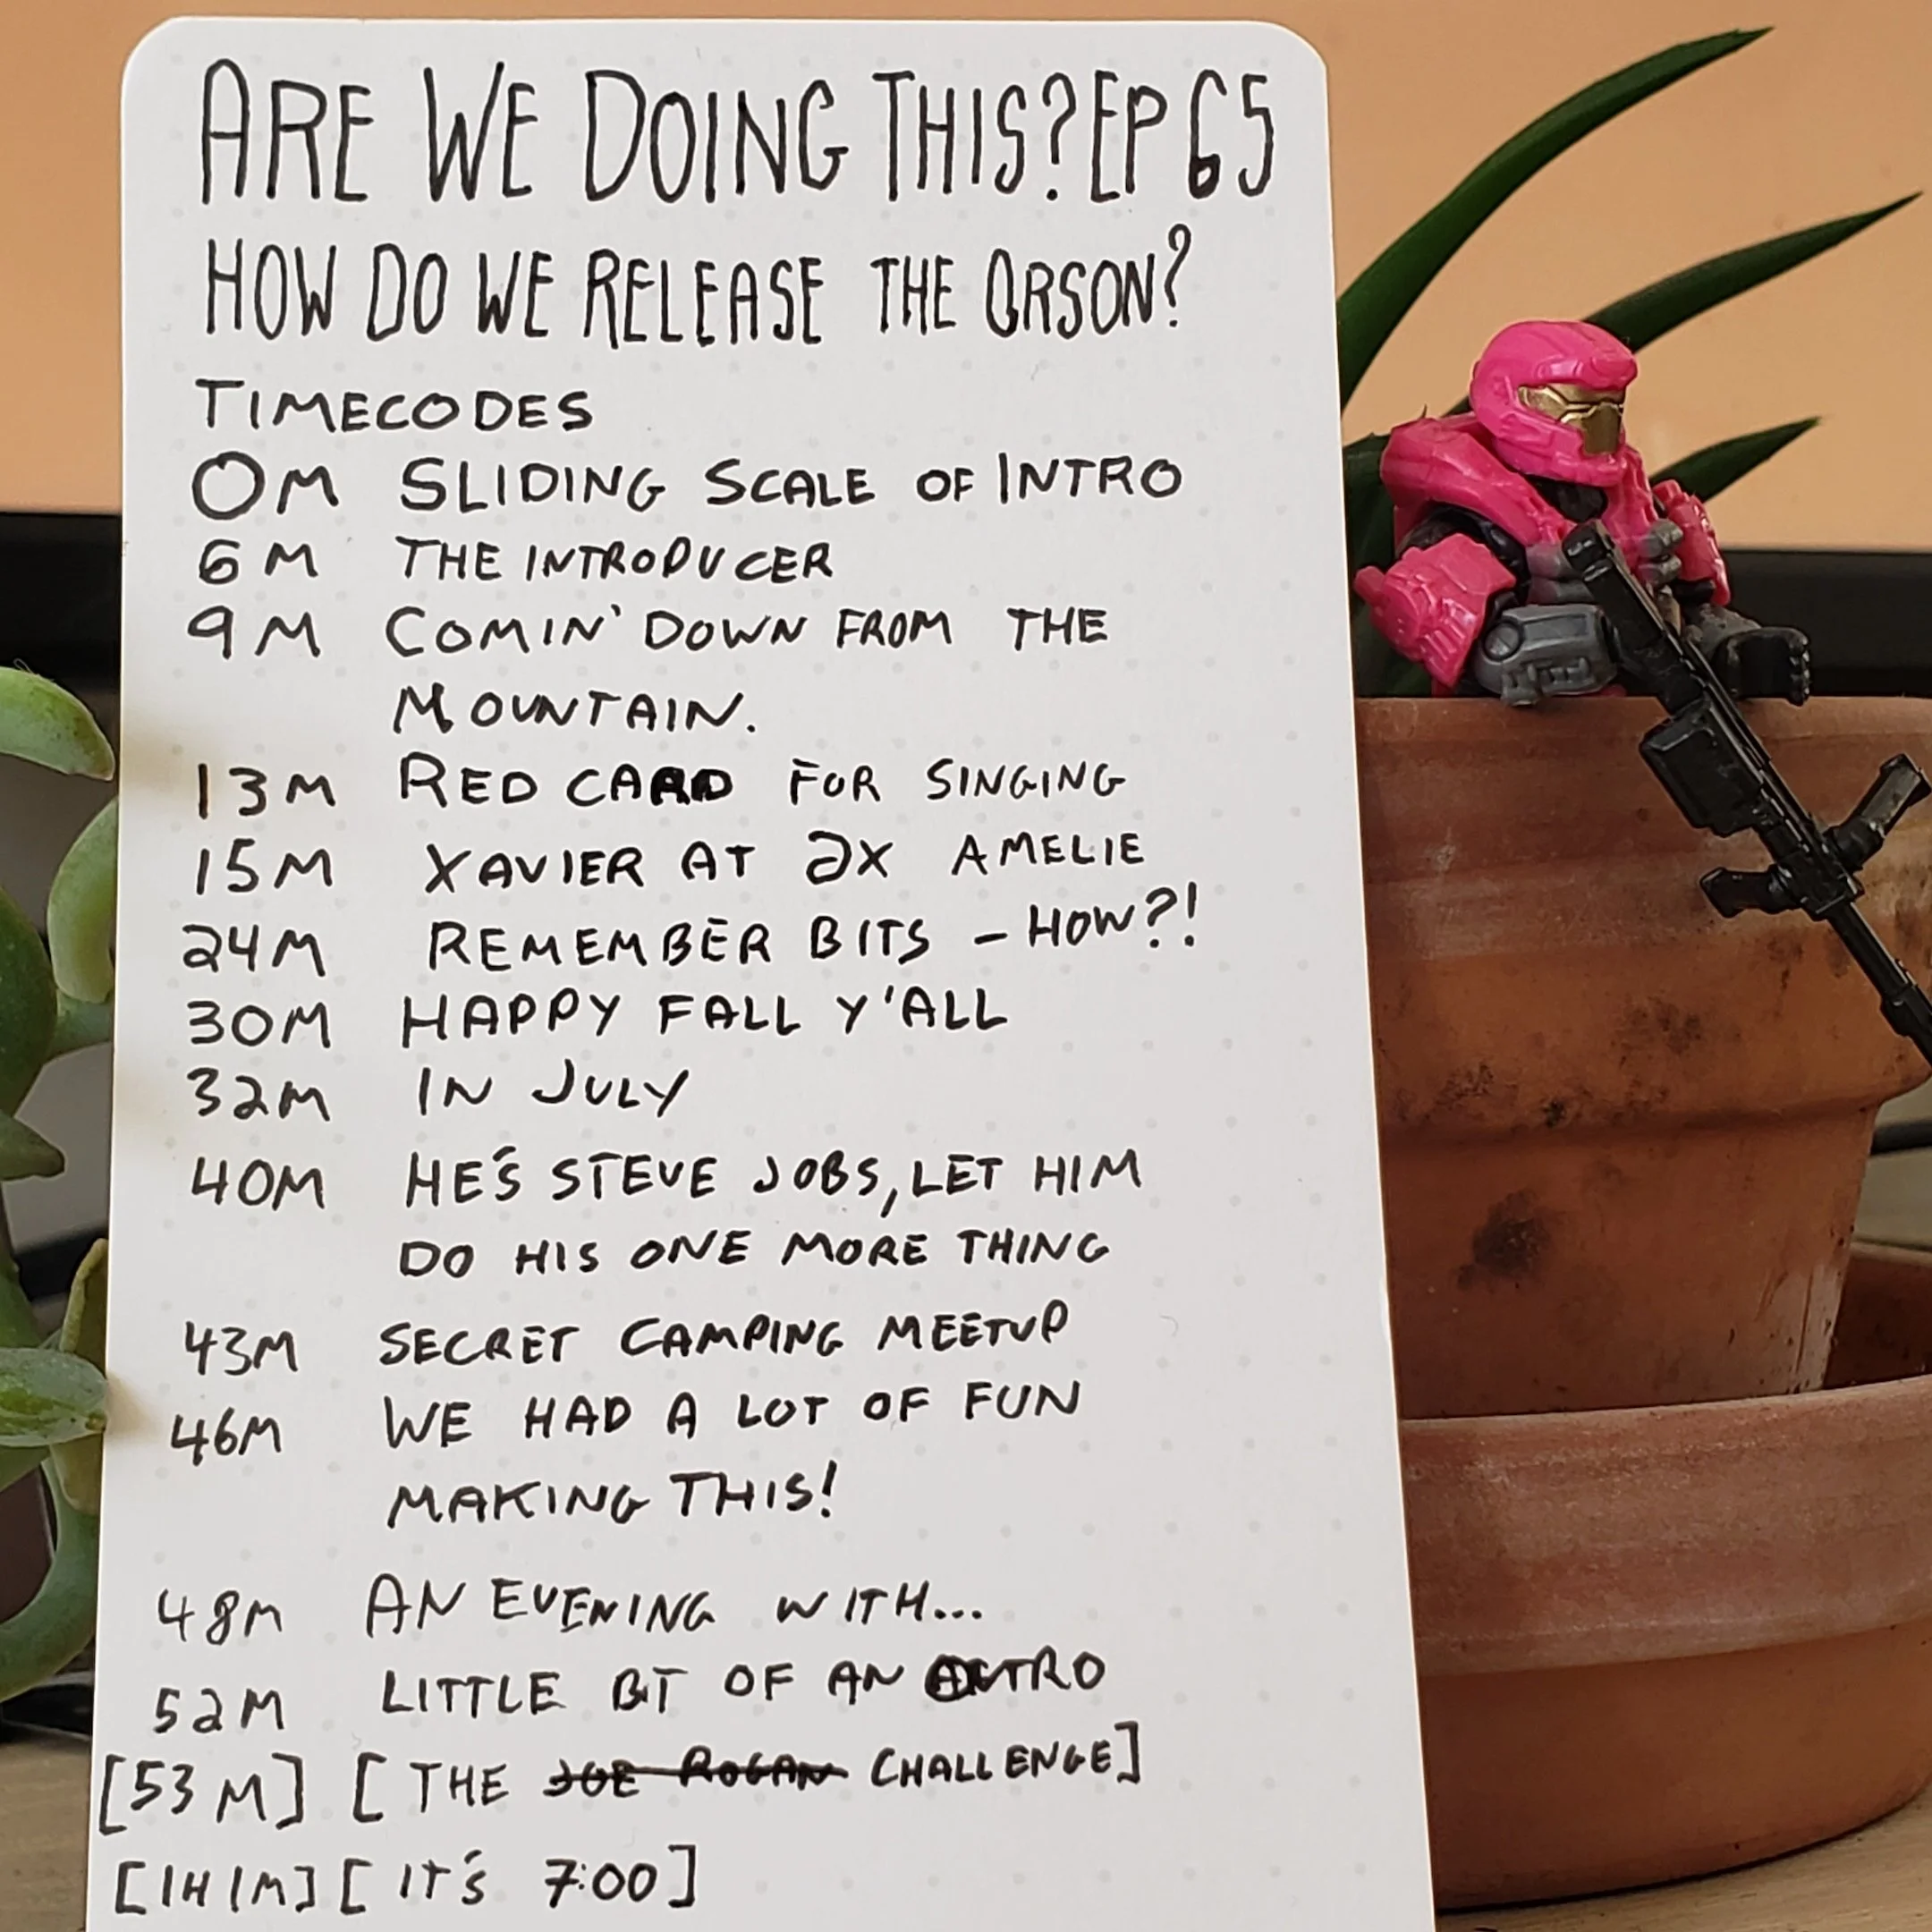 ARE WE DOING THIS? EP 65
HOW DO WE RELEASE THE ORSON?
TIMECODES
0M SLIDING SCALE OF INTRO
6M THE INTRODUCER
9M COMIN' DOWN FROM THE
MOUNTAIN.
13M RED CARD FOR SINGING
15M XAVIER AT 2X AMELIE
24M REMEMBER BITS - HOW?!
30M HAPPY FALL Y'ALL
32M IN JULY
40M HE'S STEVE JOBS, LET HIM
DO HIS ONE MORE THING
43M SECRET CAMPING MEETUP
46M WE HAD A LOT OF FUN
MAKING THIS!
48M AN EVENING WITH...
52M LITTLE BIT OF AN
[53M] [THE JOE ROGAN CHALLENGE]
[1H1M] [IT'S 7:00]